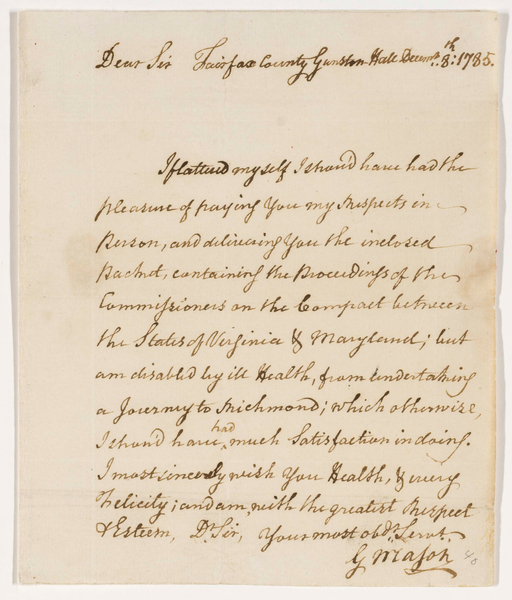 Dear Sir Fairfax County Gunston Hall Decemr. 8th: 1785.
I flattered myself I shou'd have had the
pleasure of paying You my Respects in
Person, and delivering You the inclosed
Packet, containing the Proceedings of the
Commissioners on the Compact between
the States of Virginia & Maryland; but
am disabled by ill Health, from undertaking
a Journey to Richmond; which otherwise,
I shou'd have had much Satisfaction in doing.
I most sincerely wish You Health, & every
Felicity; and am, with the greatest Respect
& Esteem, Dr. Sir, Your most obdt. Servt.
G Mason